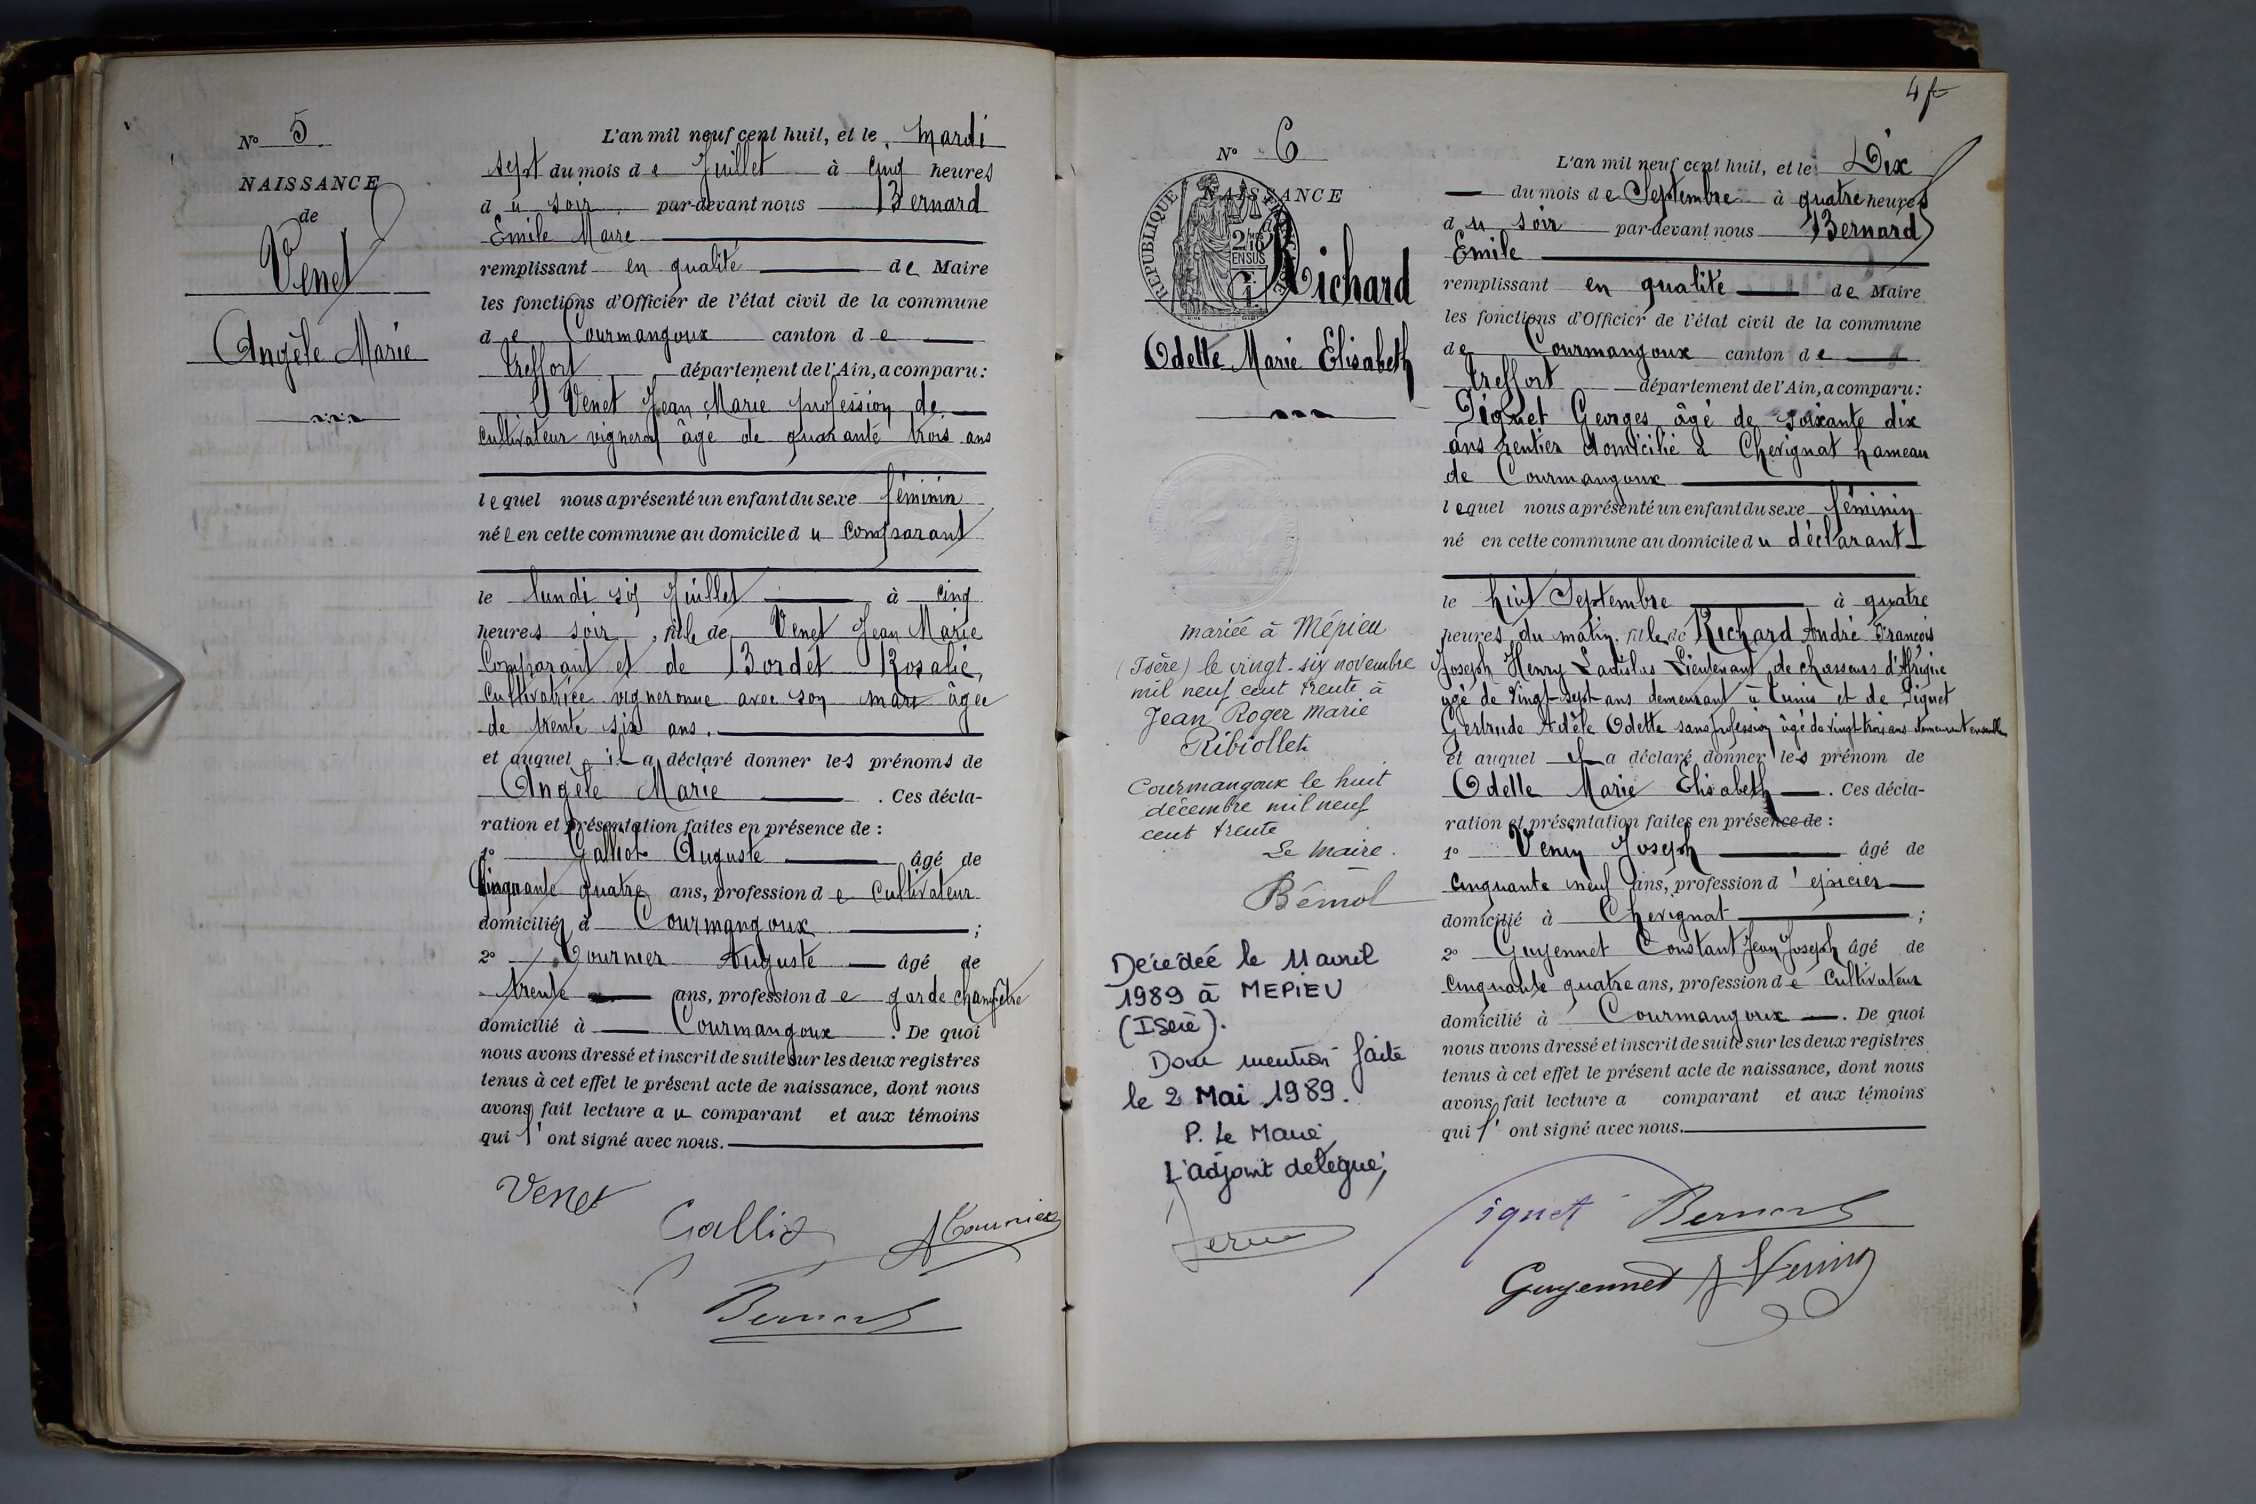 N° 5
NAISSANCE
de
Venet
Angèle Marie
L'an mil neuf cent huit, et le mardi
sept du mois de Juillet à cinq heures
du soir par-devant nous Bernard
Emile Maire
remplissant en qualité de Maire
les fonctions d'Officier de l'état civil de la commune
de Courmangoux canton de
Treffort département de l'Ain, a comparu:
Venet Jean Marie profession de
cultivateur vigneron âgé de quarante trois ans
lequel nous a présenté un enfant du sexe féminin
née en cette commune au domicile du comparant
le lundi six Juillet à cinq
heures soir, fille de Venet Jean Marie
Comparant et de Bordet Rosalie,
Cultivatrice vigneronne avec son mari âgée
de trente six ans.
et auquel il a déclaré donner les prénoms de
Angèle Marie. Ces décla-
ration et présentation faites en présence de :
1° Galliot Auguste âgé de
Cinquante quatre ans, profession de cultivateur
domicilié à Courmangoux ;
2° Tournier Auguste âgé de
trente ans, profession de garde champêtre
domicilié à Courmangoux. De quoi
nous avons dressé et inscrit de suite sur les deux registres
tenus à cet effet le présent acte de naissance, dont nous
avons fait lecture au comparant et aux témoins
qui l'ont signé avec nous.
Venet
Galliot
A Tournier
Bernard
4 ft
N° 6
NAISSANCE
REPUBLIQUE
Richard
Odette Marie Elisabeth
mariée à Mépieu
(Isère) le vingt-six novembre
mil neuf cent trente à
Jean Roger Marie
Ribiollet
Courmangoux le huit
décembre mil neuf
cent trente
Le Maire.
Bémol
Décédéé le 11 avril
1989 à MEPIEU
(Iserè).
Dont mention faite
le 2 Mai 1989.
P. Le Maire,
L'adjoint delégué,
L'an mil neuf cent huit, et le Dix
du mois de Septembre à quatre heures
du soir par-devant nous Bernard
Emile
remplissant en qualité de Maire
les fonctions d'Officier de l'état civil de la commune
de Courmangoux canton de
Treffort département de l'Ain, a comparu:
Piquet Georges âgé de soixante dix
ans rentier domicilié à Chevignat hameau
de Courmangoux
lequel nous a présenté un enfant du sexe féminin
né en cette commune au domicile du déclarant
le huit Septembre à quatre
heures du matin. fille de Richard André François
Joseph Henry Ladislas Lieutenant de chasseurs d'Afrique
âgé de vingt-sept ans demeurant à Tunis et de Piquet
Gertrude Adèle Odette sans profession âgé de vingt trois ans demeurant ensemble
et auquel il a déclaré donner les prénom de
Odette Marie Elisabeth. Ces décla-
ration et présentation faites en présence de :
1° Venin Joseph âgé de
cinquante neuf ans, profession d'épicier
domicilié à Chevignat ;
2° Guyennet Constant Jean Joseph âgé de
cinquante quatre ans, profession de cultivateur
domicilié à Courmangoux. De quoi
nous avons dressé et inscrit de suite sur les deux registres
tenus à cet effet le présent acte de naissance, dont nous
avons fait lecture a comparant et aux témoins
qui l'ont signé avec nous.
Piquet
Bernard
Guyennet
J Venin